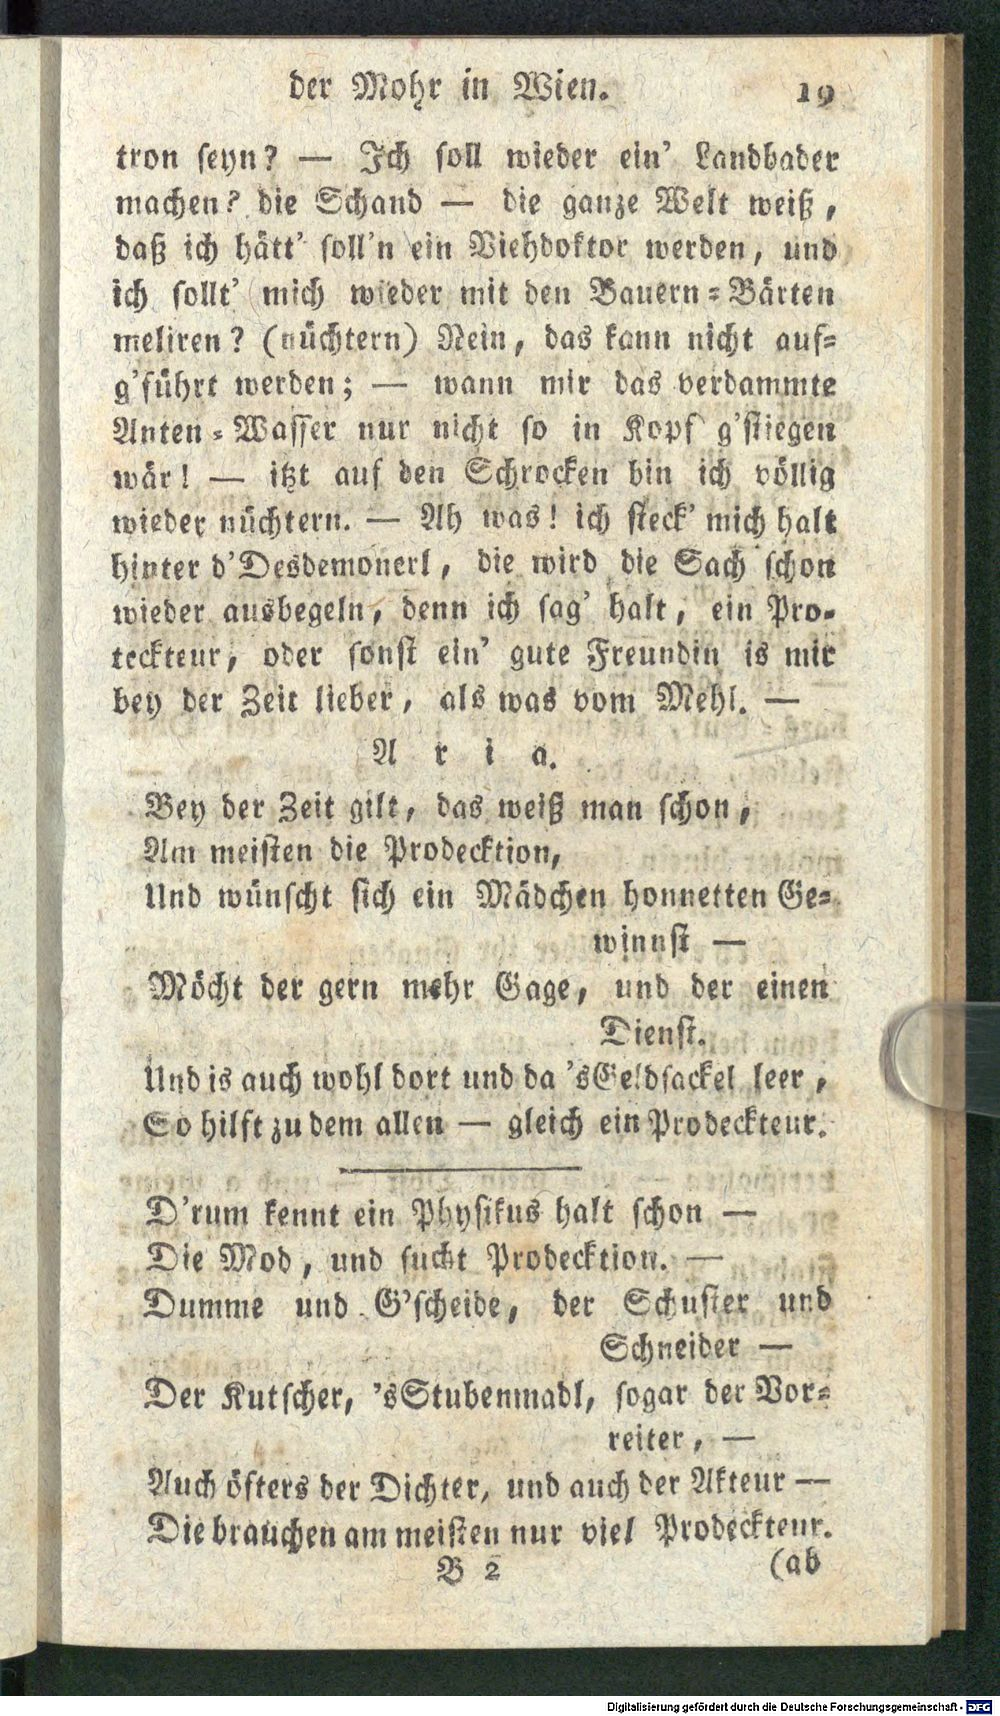 der Mohr in Wien. 19
tron seyn? — Ich soll wieder ein' Landbader
machen? die Schand — die ganze Welt weiß,
daß ich hätt' soll'n ein Viehdoktor werden, und
ich sollt' mich wieder mit den Bauern-Bärten
meliren? (nüchtern) Nein, das kann nicht auf-
g'führt werden; — wann mir das verdammte
Anten-Wasser nur nicht so in Kopf g'stiegen
wär! — itzt auf den Schrocken bin ich völlig
wieder nüchtern. — Ah was! ich steck' mich halt
hinter d'Desdemonerl, die wird die Sach schon
wieder ausbegeln, denn ich sag' halt, ein Pro-
teckteur, oder sonst ein' gute Freundin is mir
bey der Zeit lieber, als was vom Mehl. —
Aria.
Bey der Zeit gilt, das weiß man schon,
Am meisten die Prodecktion,
Und wünscht sich ein Mädchen honnetten Ge-
winnst —
Möcht der gern mehr Gage, und der einen
Dienst.
Und is auch wohl dort und da 's Geldsackel leer,
So hilft zu dem allen — gleich ein Prodeckteur.
D'rum kennt ein Physikus halt schon —
Die Mod, und sucht Prodecktion. —
Dumme und G'scheide, der Schuster und
Schneider —
Der Kutscher, 's Stubenmadl, sogar der Vor-
reiter, —
Auch öfters der Dichter, und auch der Akteur —
Die brauchen am meisten nur viel Prodeckteur.
B 2 (ab
Digitalisierung gefördert durch die Deutsche Forschungsgemeinschaft - DFG